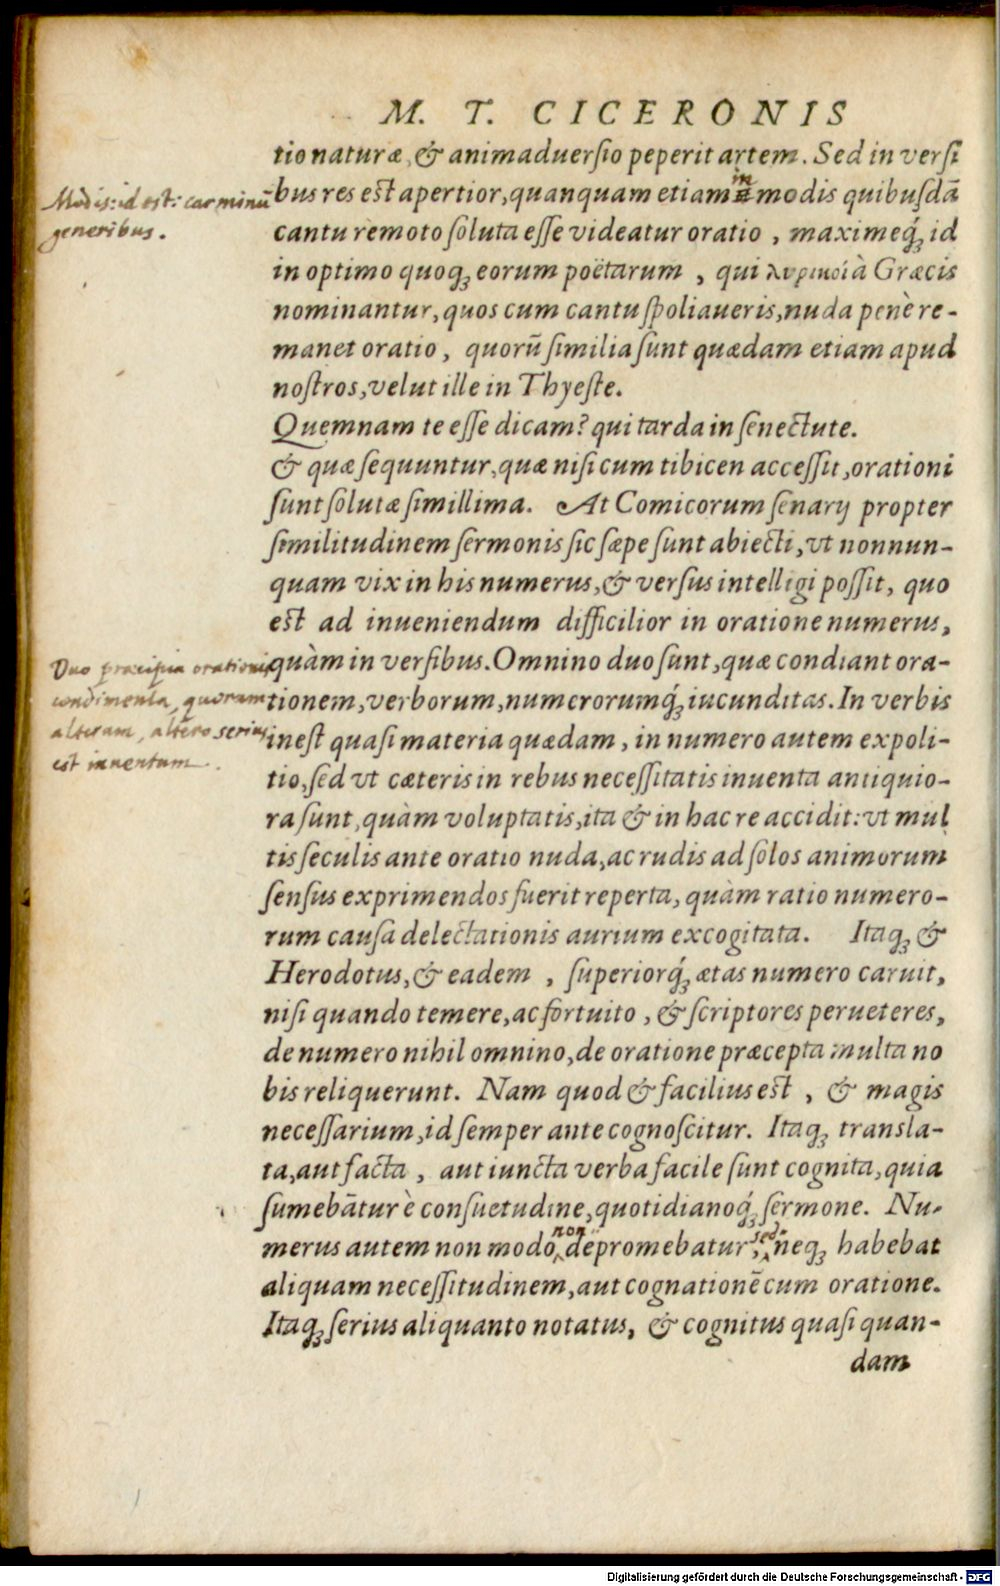 M. T. CICERONIS
tio naturæ, & animaduersio peperit artem. Sed in versi
Modis: id est: carminū
generibus.
bus res est apertior, quanquam etiam in modis quibusdā
cantu remoto soluta esse videatur oratio, maximeq́ꝫ id
in optimo quoqꝫ eorum poëtarum, qui λυρικοὶ à Græcis
nominantur, quos cum cantu spoliaueris, nuda penè re-
manet oratio, quorū similia sunt quædam etiam apud
nostros, velut ille in Thyeste.
Quemnam te esse dicam? qui tarda in senectute.
& quæ sequuntur, quæ nisi cum tibicen accessit, orationi
sunt solutæ simillima. At Comicorum senarij propter
similitudinem sermonis sic sæpe sunt abiecti, vt nonnun-
quam vix in his numerus, & versus intelligi possit, quo
est ad inueniendum difficilior in oratione numerus,
Duo præcipua orationis
condimenta, quorum
alterum, altero serius
est inuentum.
quàm in versibus. Omnino duo sunt, quæ condiant ora-
tionem, verborum, numerorumq́ꝫ iucunditas. In verbis
inest quasi materia quædam, in numero autem expoli-
tio, sed vt cæteris in rebus necessitatis inuenta antiquio-
ra sunt, quàm voluptatis, ita & in hac re accidit: vt mul
tis seculis ante oratio nuda, ac rudis ad solos animorum
sensus exprimendos fuerit reperta, quàm ratio numero-
rum causa delectationis aurium excogitata. Itaqꝫ &
Herodotus, & eadem, superiorq́ꝫ ætas numero caruit,
nisi quando temere, ac fortuito, & scriptores perueteres,
de numero nihil omnino, de oratione præcepta multa no
bis reliquerunt. Nam quod & facilius est, & magis
necessarium, id semper ante cognoscitur. Itaqꝫ transla-
ta, aut facta, aut iuncta verba facile sunt cognita, quia
sumebātur è consuetudine, quotidianoq́ꝫ sermone. Nu-
merus autem non modo non depromebatur, sed neqꝫ habebat
aliquam necessitudinem, aut cognationē cum oratione.
Itaqꝫ serius aliquanto notatus, & cognitus quasi quan-
dam
Digitalisierung gefördert durch die Deutsche Forschungsgemeinschaft - DFG